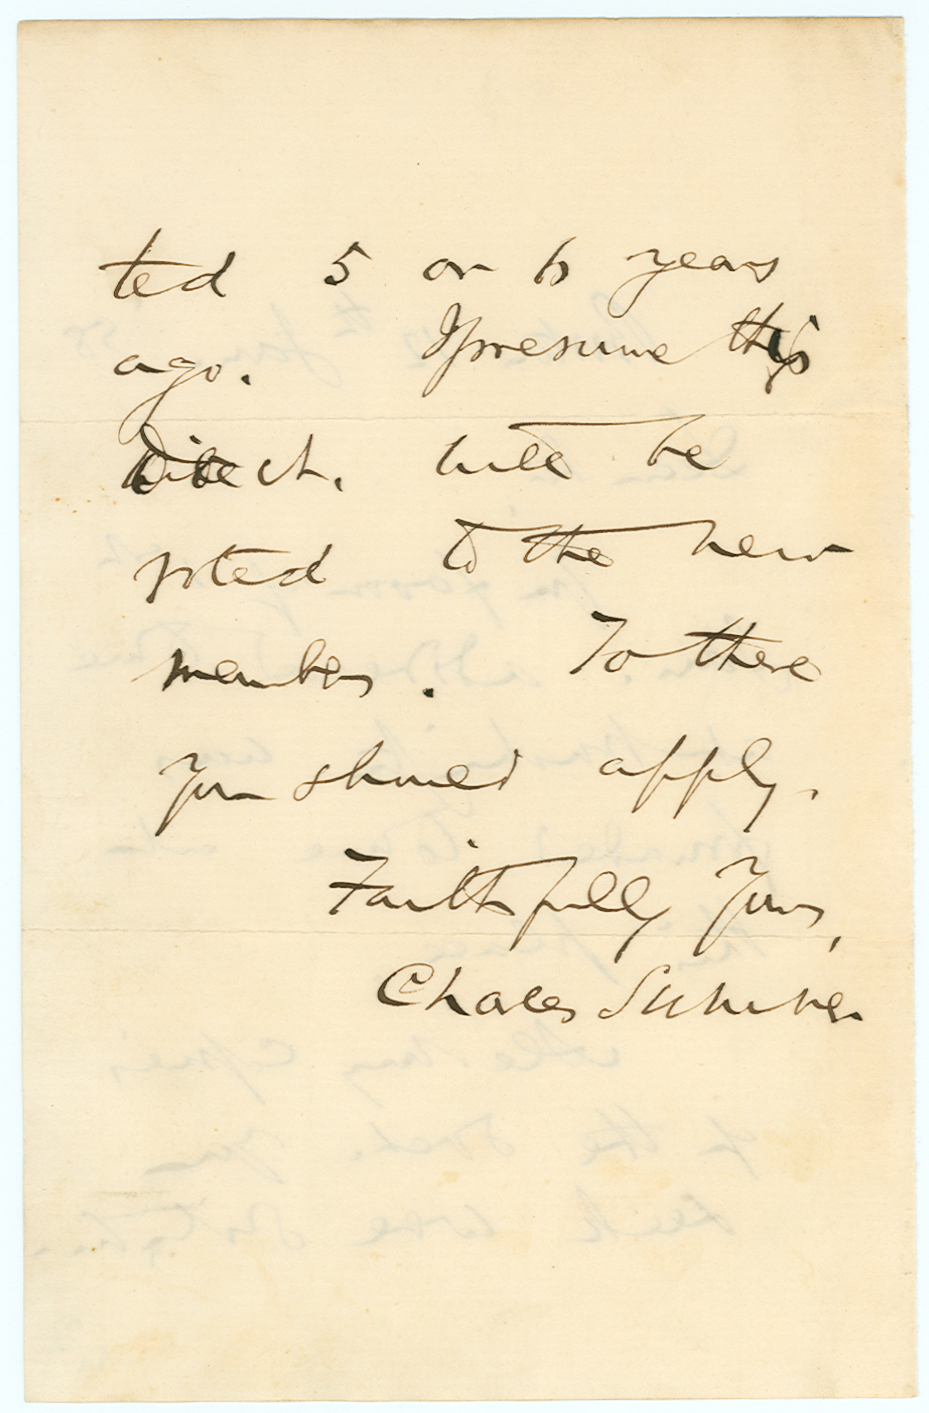 ted 5 or 6 years
ago. I presume this
will be
voted to the new
members. To these
You should apply.
Faithfully Yours,
Charles Sumner.